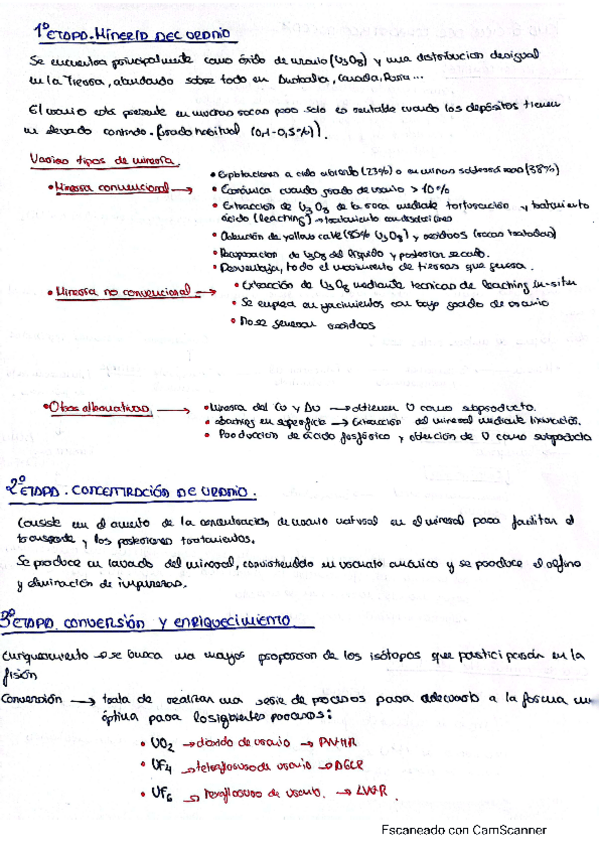 1º ETAPA. MINERÍA DEL URANIO
Se encuentra principalmente como óxido de uranio (U3O8) y una distribución desigual
en la Tierra, abundando sobre todo en Australia, Canada, Rusia...
El uranio está presente en muchas rocas pero solo es rentable cuando los depósitos tienen
un elevado contenido. (grado habitual (0,1-0,5%)).
Varios tipos de minería.
• Minería convencional → • Explotaciones a cielo abierto (23%) o en minas subterráneas (38%)
• Económica cuando grado de uranio > 10%
• Extracción de U3O8 de la roca mediante trituración y tratamiento
ácido (leaching) → tratamiento con
• Obtención de yellow cake (85% U3O8) y residuos (rocas tratadas)
• Recuperación de U3O8 del líquido y posterior secado.
• Desventaja, todo el movimiento de tierras que genera.
• Minería no convencional → • Extracción de U3O8 mediante tecnicas de leaching in-situ
• Se emplea en yacimientos con bajo grado de uranio
• No se generan residuos
• Otras alternativas → • Minería del Cu y Au → obtienen U como subproducto.
• en superficie → Extracción del mineral mediante lixiviación.
• Producción de ácido fosfórico y obtención de U como subproducto
2º ETAPA. CONCENTRACIÓN DE URANIO.
Consiste en el aumento de la concentración de uranio natural en el mineral para facilitar el
transporte y los posteriores tratamientos.
Se produce un lavado del mineral, convirtiendo en uranato amónico y se produce el refino
y eliminación de impurezas.
3º ETAPA. CONVERSIÓN Y ENRIQUECIMIENTO
Enriquecimiento → se busca una mayor proporcion de los isótopos que participarán en la
fisión
Conversión → trata de realizar una serie de procesos para adecuarlo a la forma
óptima para los siguientes procesos:
• UO2 → dióxido de uranio → PWHR
• UF4 → tetrafluoruro de uranio → AGCR
• UF6 → hexafluoruro de uranio. → LWR.
Escaneado con CamScanner